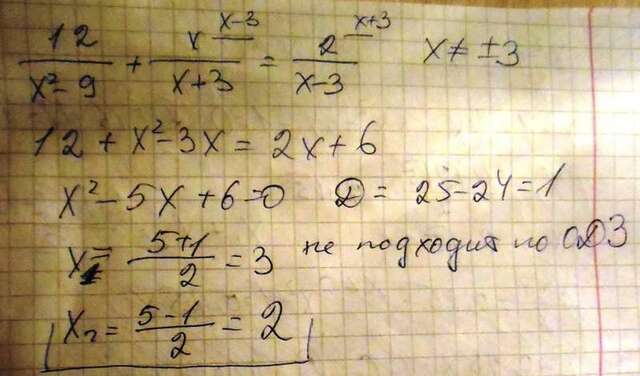 12/(x²-9) + x^(x-3)/(x+3) = 2^(x+3)/(x-3) x ≠ ±3
12 + x² - 3x = 2x + 6
x² - 5x + 6 = 0 D = 25 - 24 = 1
x₁ = (5+1)/2 = 3 не подходит по ОДЗ
x₂ = (5-1)/2 = 2